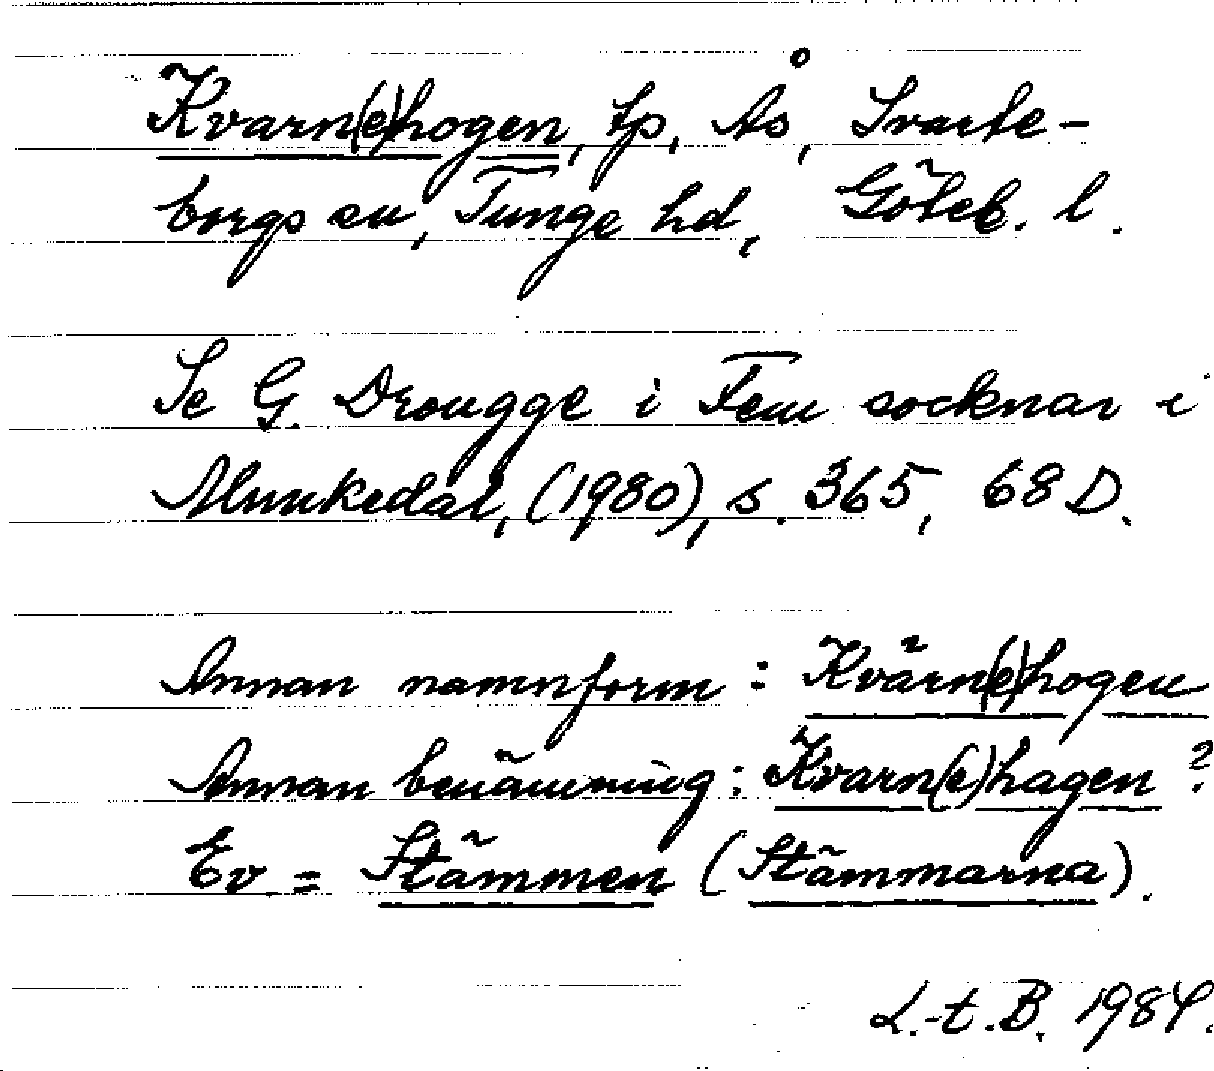 Kvarn(e)hogen, tp, Ås, Svarte-
borgs sn, Tunge hd, Göteb. l.
Se G. Drougge i Fem socknar i
Munkedal, (1980), s. 365, 68 D.
Annan namnform: Kvärn(e)hogen
Annan benämning: Kvarn(e)hagen?
Ev. = Stämmen (Stämmarna).
L.-t.B. 1984.